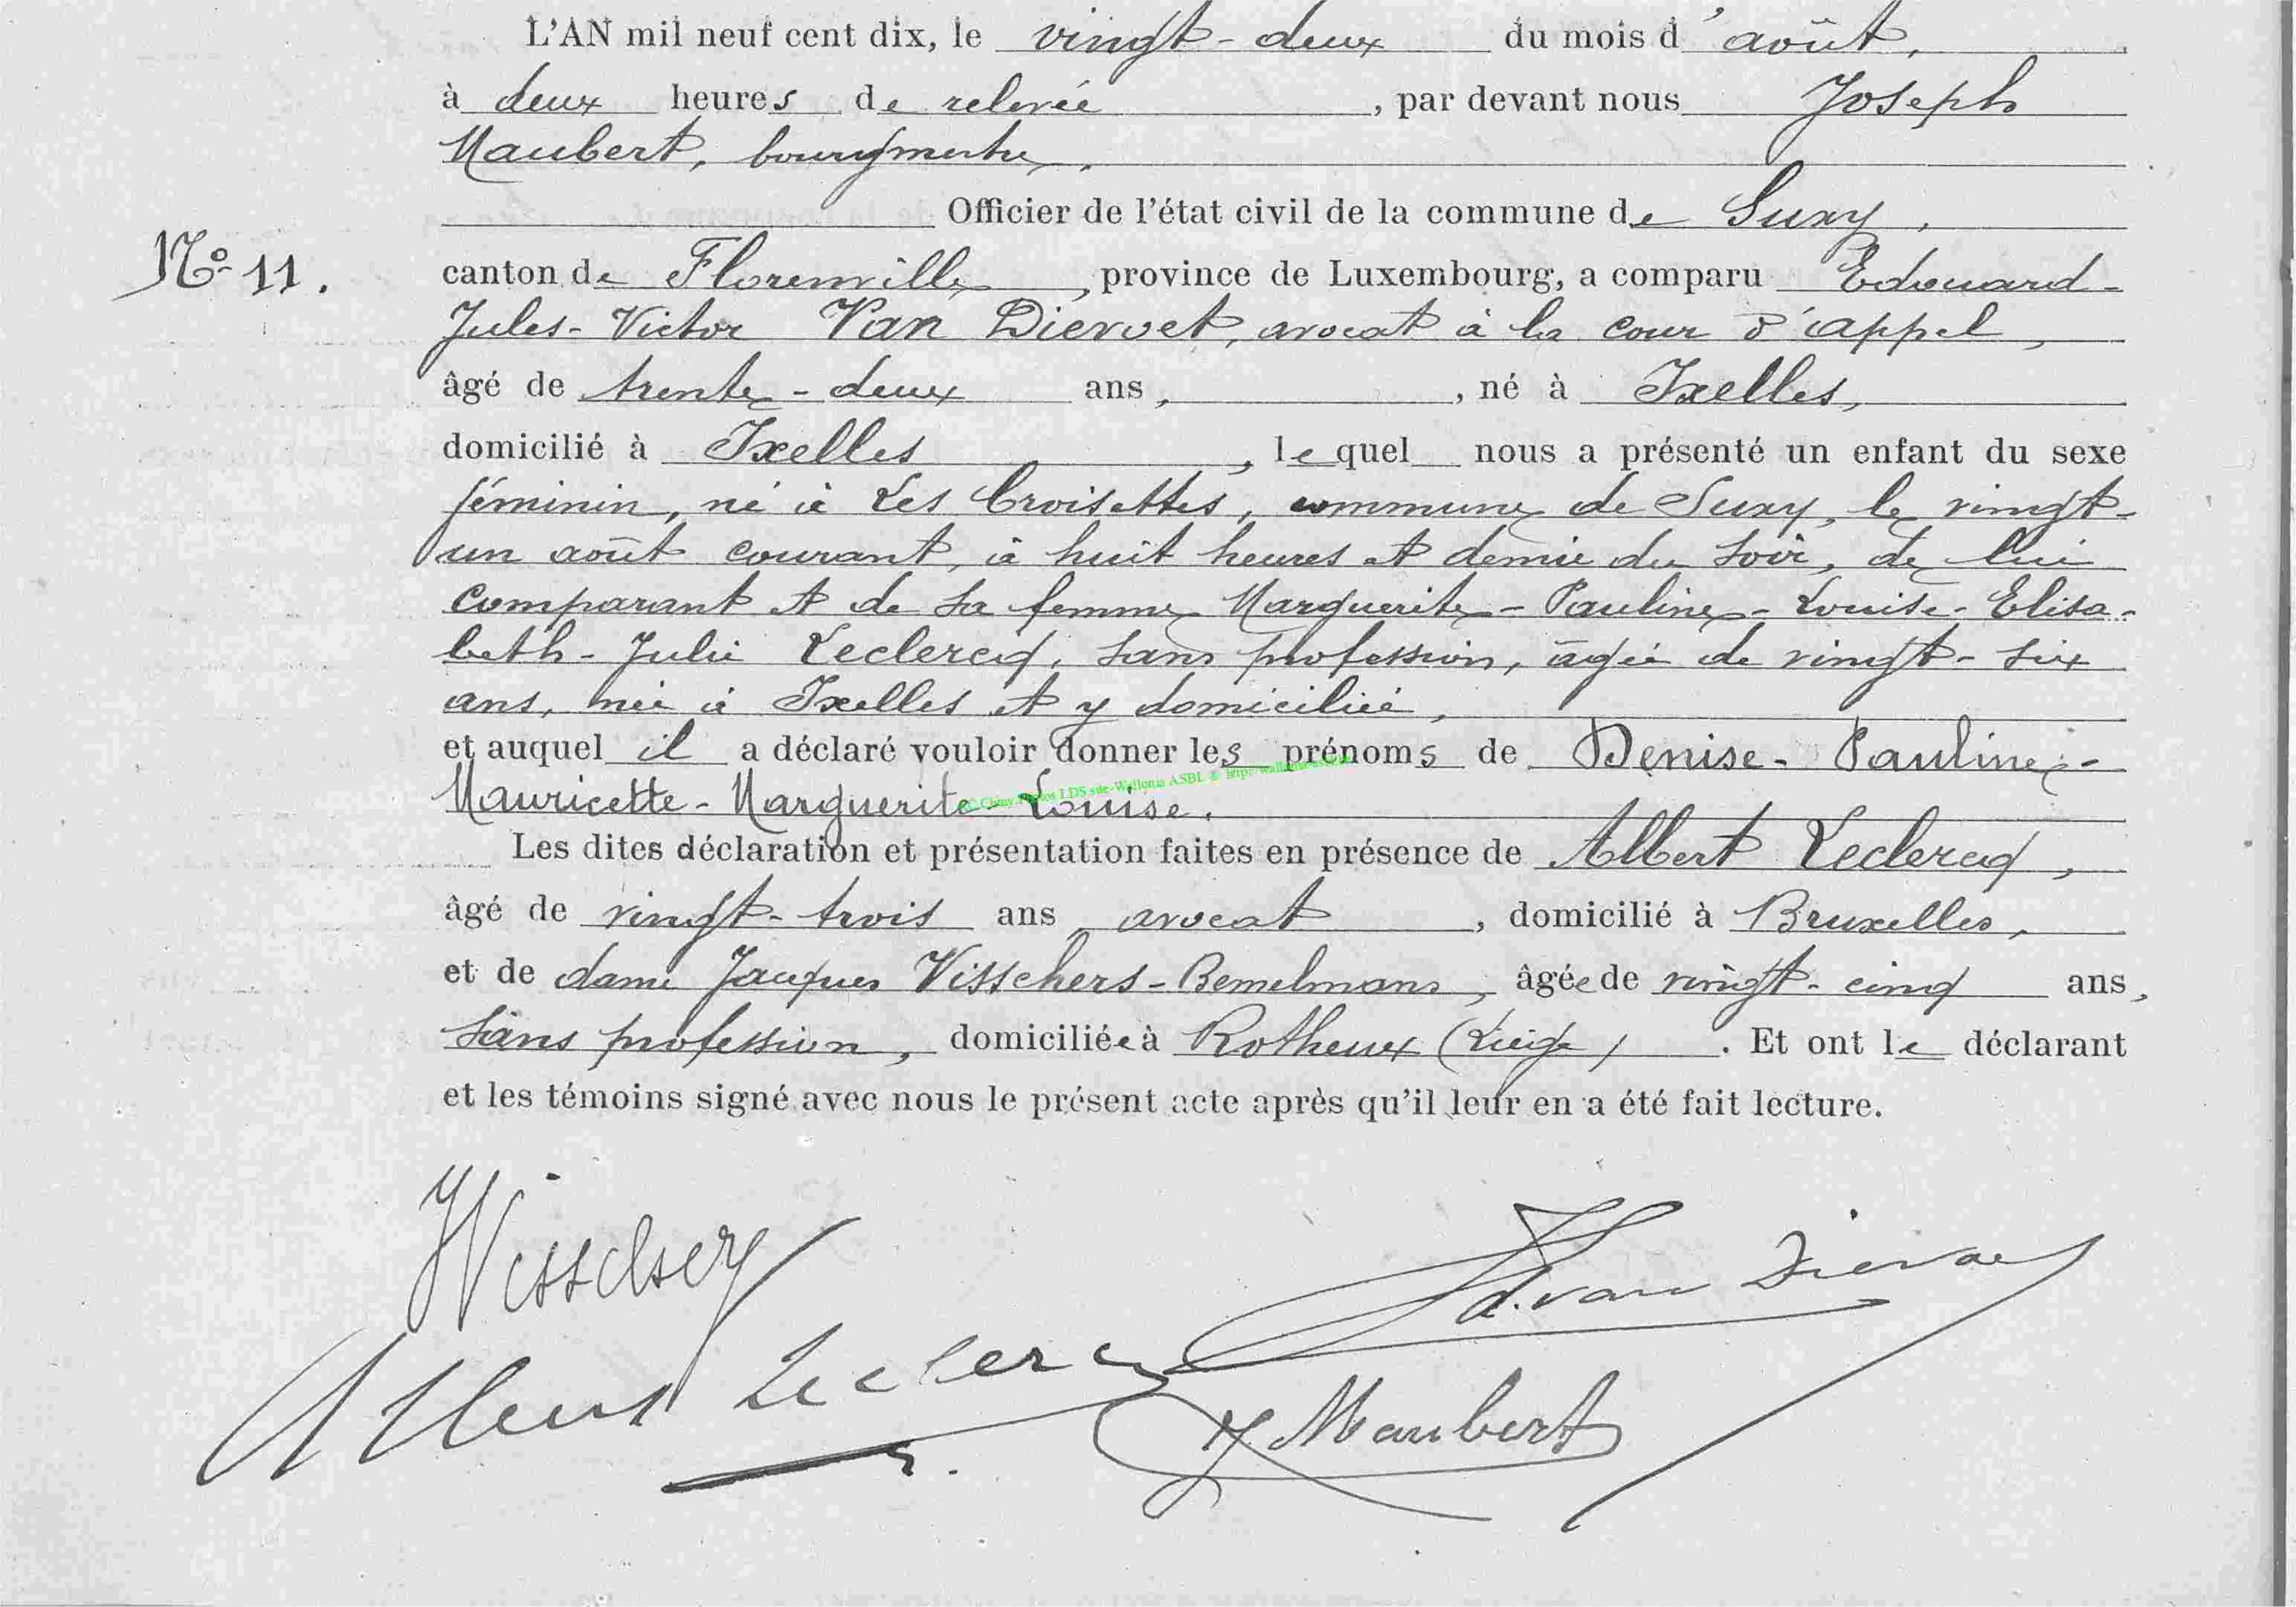 L'AN mil neuf cent dix, le vingt-deux du mois d'août,
à deux heures de relevée, par devant nous Joseph
Maubert, bourgmestre,
Officier de l'état civil de la commune de Suxy,
N° 11.
canton de Florenville, province de Luxembourg, a comparu Edouard-
Jules-Victor Van Diervoet, avocat à la cour d'appel,
âgé de trente-deux ans, , né à Ixelles,
domicilié à Ixelles, lequel nous a présenté un enfant du sexe
féminin, né à Les Croisettes, commune de Suxy, le vingt-
un août courant, à huit heures et demie du soir, de lui
comparant et de sa femme Marguerite-Pauline-Louise-Elisa-
beth-Julie Leclercq, sans profession, âgée de vingt-six
ans, née à Ixelles et y domiciliée,
et auquel il a déclaré vouloir donner les prénoms de Denise-Pauline-
Mauricette-Marguerite-Louise.
Les dites déclaration et présentation faites en présence de Albert Leclercq,
âgé de vingt-trois ans, avocat, domicilié à Bruxelles,
et de dame Jacques Visschers-Bemelmans, âgée de vingt-cinq ans,
sans profession, domiciliée à Rotheux (Liège). Et ont le déclarant
et les témoins signé avec nous le présent acte après qu'il leur en a été fait lecture.
JVisschers
Ed. van Dierv
Albert Leclercq
J Maubert